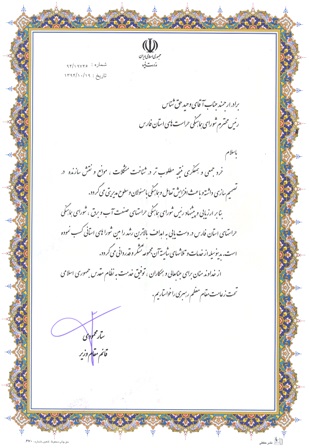 جمهوری اسلامی ایران
وزارت نیرو
شماره : ۹۲/۱۲۷۲۷
تاریخ : ۱۳۹۲/۱۰/۱۹
برادر ارجمند جناب آقای وحید حق شناس
رئیس محترم شورای هماهنگی حراست های استان فارس
با سلام
خرد جمعی و همفکری نتیجه مطلوب تر در شناخت مشکلات ، موانع و نقش سازنده در
تصمیم سازی داشته و باعث افزایش تعامل و هماهنگی با مسئولان و سطوح مدیریتی می گردد.
بنابر ارزیابی و پیشنهاد رئیس شورای هماهنگی حراستهای صنعت آب و برق ، شورای هماهنگی
حراستهای استان فارس در دست یابی به اهداف بالاترین رشد را بین شوراهای استانی کسب نموده
است. بدینوسیله از خدمات و تلاشهای شایسته آن مجموعه تشکر و قدردانی می گردد.
از خداوند منان برای جنابعالی و همکاران ، توفیق خدمت به نظام مقدس جمهوری اسلامی
تحت زعامت مقام معظم رهبری را خواستاریم.
ستار محمودی
قائم مقام وزیر